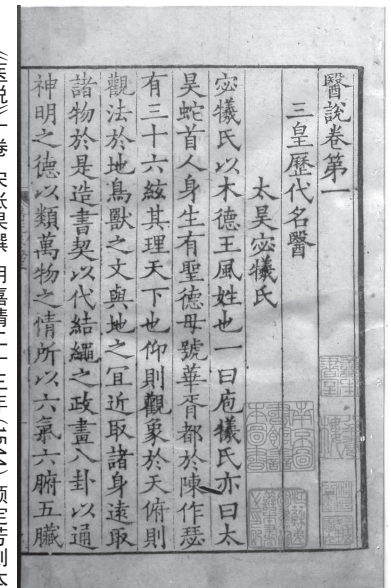 醫說卷第一
三皇歷代名醫
太昊宓犧氏
宓犧氏以木德王風姓也一曰庖犧氏亦曰太
昊蛇首人身生有聖德母號華胥都於陳作瑟
有三十六絃其理天下也仰則觀象於天俯則
觀法於地鳥獸之文與地之冝近取諸身遠取
諸物於是造書契以代結繩之政畫八卦以通
神明之德以類萬物之情所以六氣六腑五臟
《医说》十卷 宋张杲撰 明嘉靖二十三年(1544)顾定芳刻本